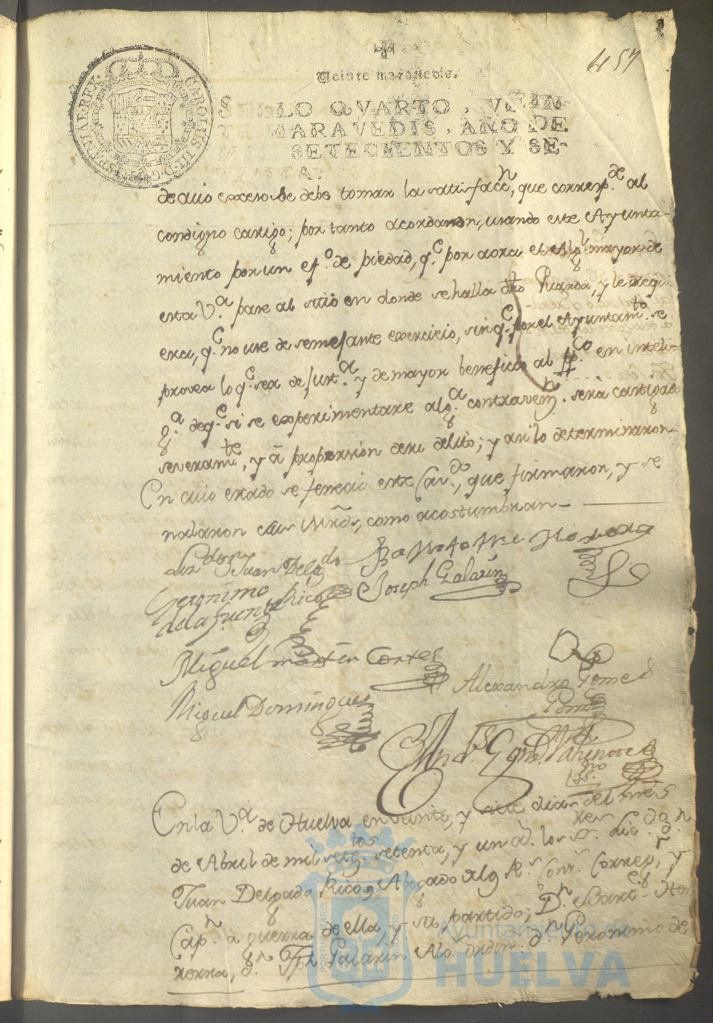 457
Veinte maravedis.
CAROLUS III D G HISPANIAR REX
SELLO QVARTO, VEIN-
TE MARAVEDIS, AÑO DE
SETECIENTOS Y SE-
TENTA:
de cuio exceso se debe tomar la satisfacn, que correspde al
condigno castigo; por tanto acordaron, usando este Ayunta-
miento por un efo de piedad, qe por aora el Algl mayor de
esta Va pase al sitio en donde se halla dho Rianda, y le requi-
era, qe no use de semejante exercicio, sin qe por el Ayuntamto se
provea lo qe sea de justa y de mayor beneficio al pco en inteli-
ga de qe si se experimentare alga contravenn sera castigado
severamte, y a proporsion de su delito; y asi lo determinaron
En cuio estado se fenecio este Cavdo, que firmaron, y se
ñalaron sus Mrds, como acostumbran
Lizdo dn Juan Delgdo
Bartolome Herrera
Geronimo
de la fuente Rico
Joseph Galarin
Miguel martin Cortes
Alexandro Gomes
Miguel Domingues
En la Va de Huelva en veinte, y siete dias del mes
de Abril de mil setetos setenta, y un as los Sres Lic. dn
Juan Delgado Rico, Abogado Rs Conss Corregr, y
Capn a guerra de ella, y su partido; Dn Barte Her-
rera, dn Jph Galarin Alo ordin. dn Geronimo de
Ayuntamiento de
HUELVA